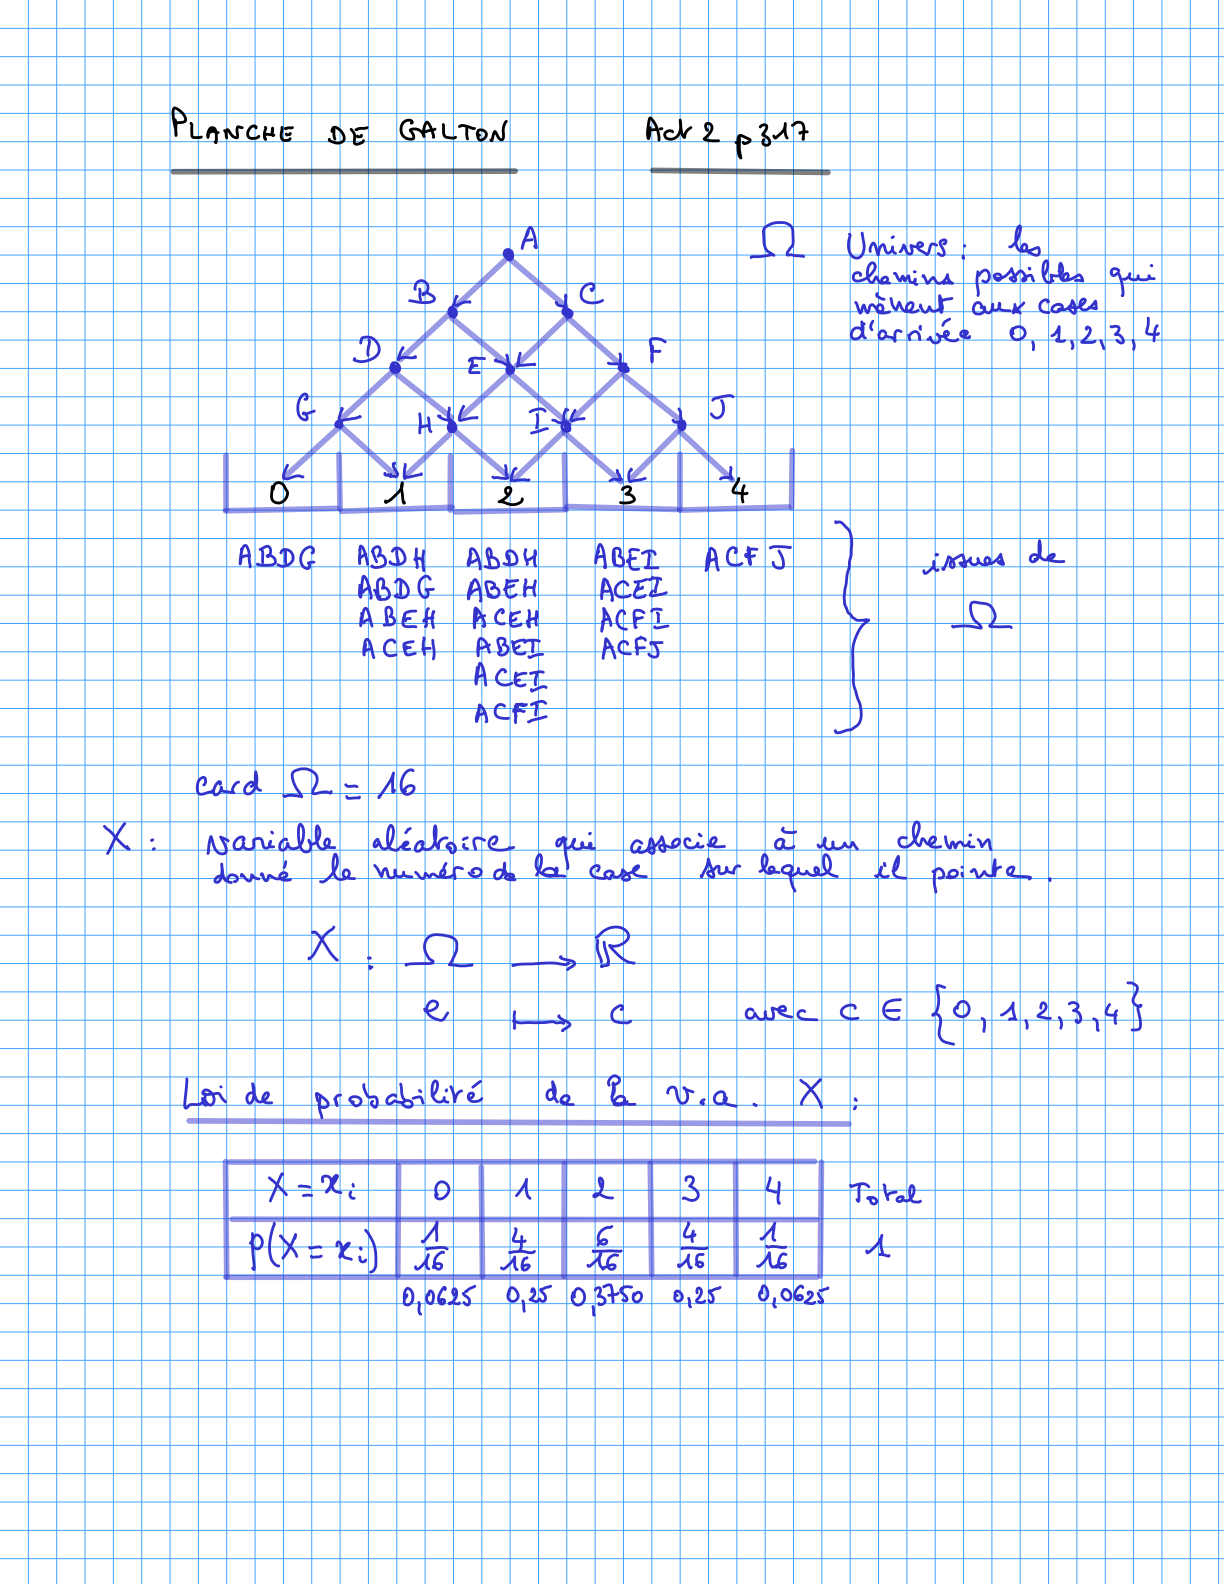 PLANCHE DE GALTON Act 2 p317
A
B C
D E F
G H I J
0 1 2 3 4
Ω Univers : les
chemins possibles qui
mènent aux cases
d'arrivée 0, 1, 2, 3, 4
ABDG ABDH ABDH ABEI ACFJ
ABDG ABEH ACEI
ABEH ACEH ACFI
ACEH ABEI ACFJ
ACEI
ACFI
issues de
Ω
card Ω = 16
X : variable aléatoire qui associe à un chemin
donné le numéro de la case sur lequel il pointe.
X : Ω ⟶ ℝ
e ⟼ c avec c ∈ {0, 1, 2, 3, 4}
Loi de probabilité de la v.a. X :
X = xi 0 1 2 3 4 Total
p(X = xi) 1/16 4/16 6/16 4/16 1/16 1
0,0625 0,25 0,3750 0,25 0,0625